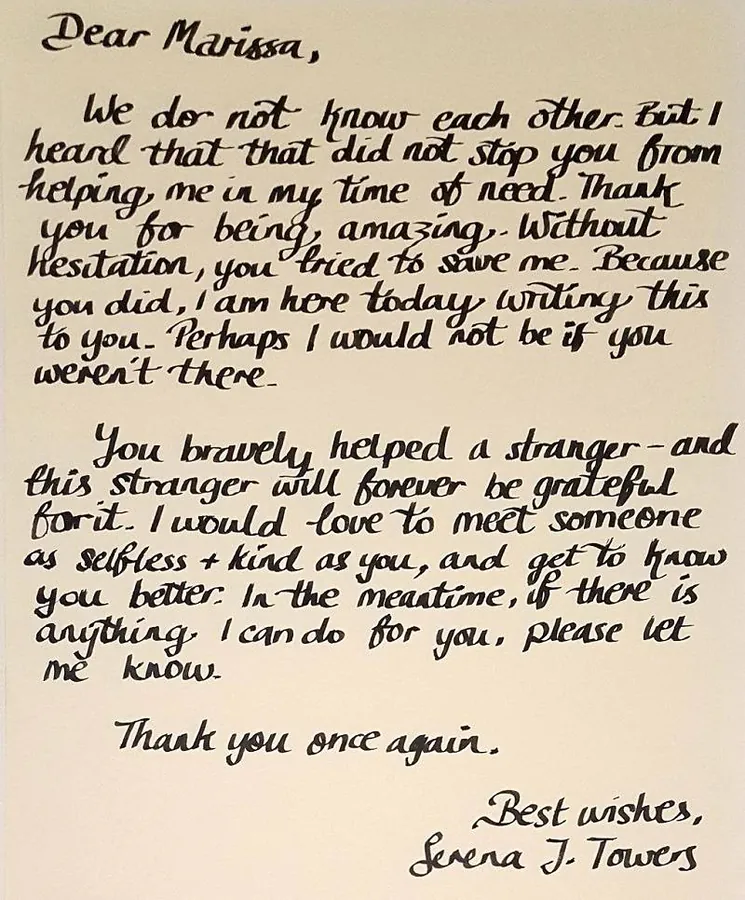 Dear Marissa,
We do not know each other. But I
heard that that did not stop you from
helping me in my time of need. Thank
you for being amazing. Without
hesitation, you tried to save me. Because
you did, I am here today writing this
to you. Perhaps I would not be if you
weren't there.
You bravely helped a stranger - and
this stranger will forever be grateful
for it. I would love to meet someone
as selfless + kind as you, and get to know
you better. In the meantime, if there is
anything I can do for you, please let
me know.
Thank you once again.
Best wishes,
Serena J. Towers